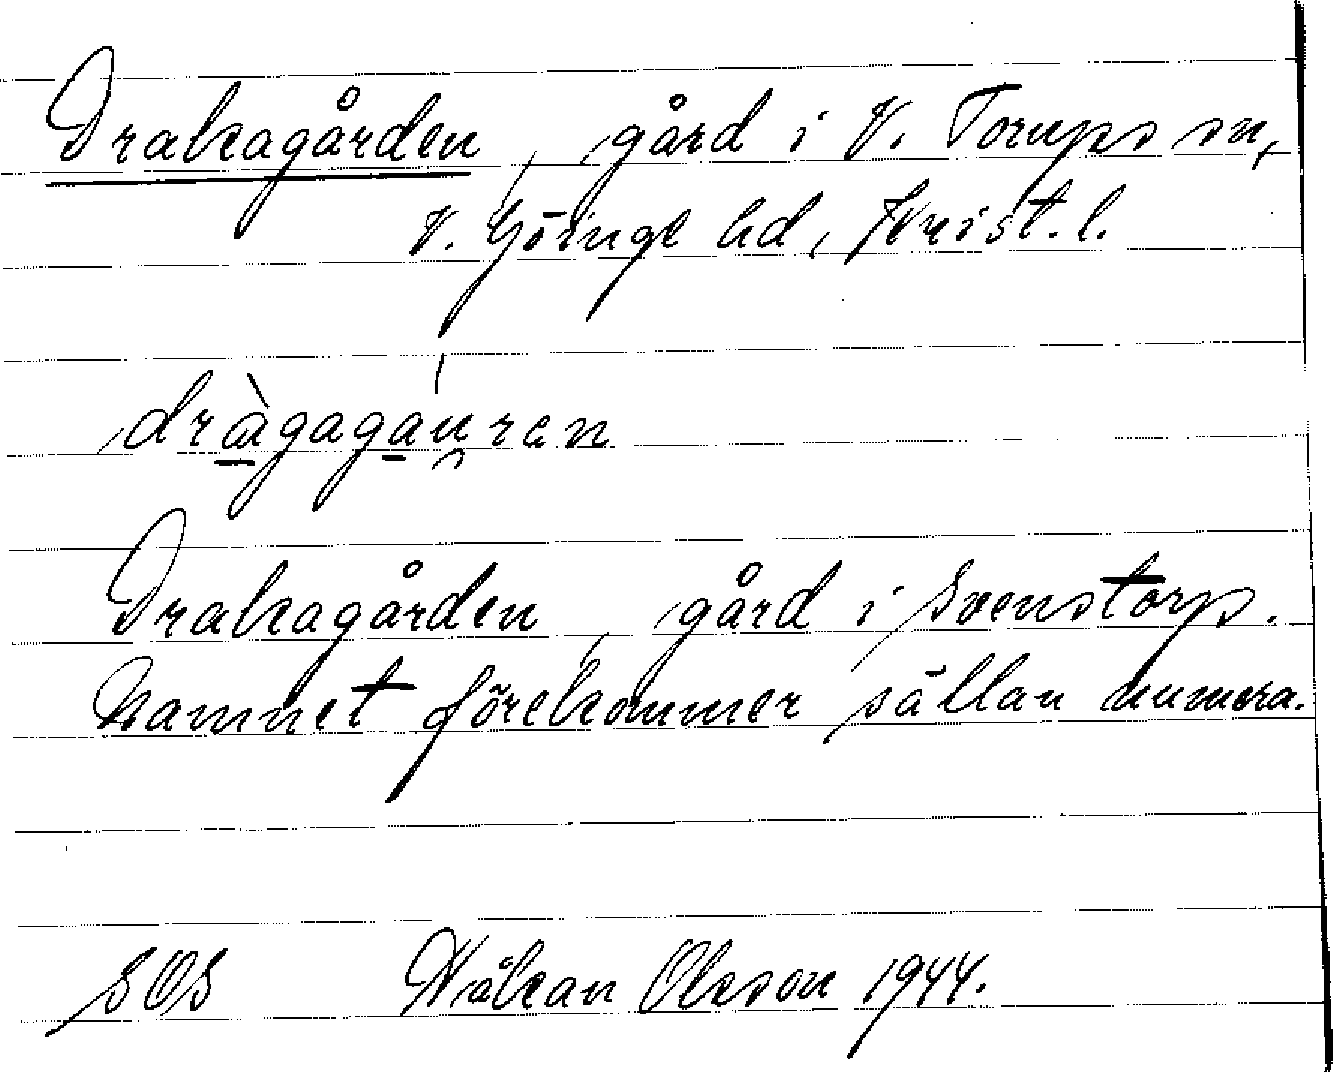 Drakagården, gård i V. Torups sn,
V. Göinge hd, Krist. l.
dràgagáu̯ran
Drakagården, gård i Svenstorp.
Namnet förekommer sällan numera.
SOS Håkan Olsson 1944.